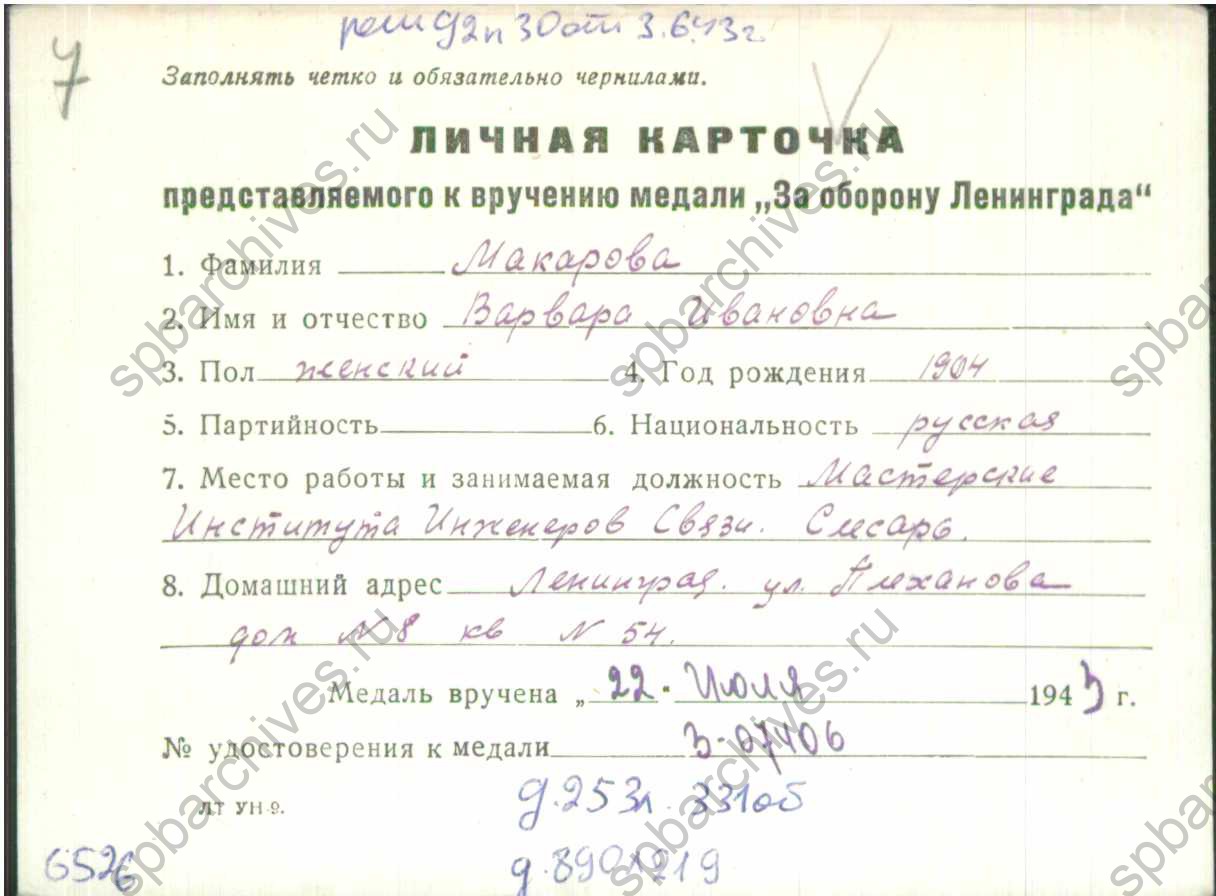 реш 92 п 30 от 3.6.43 г
7
Заполнять четко и обязательно чернилами.
ЛИЧНАЯ КАРТОЧКА
представляемого к вручению медали „За оборону Ленинграда“
1. Фамилия Макарова
2. Имя и отчество Варвара Ивановна
3. Пол женский 4. Год рождения 1904
5. Партийность 6. Национальность русская
7. Место работы и занимаемая должность Мастерские
Института Инженеров Связи. Слесарь.
8. Домашний адрес Ленинград. ул. Плеханова
дом N 8 кв N 54.
Медаль вручена „22" Июля 1943 г.
№ удостоверения к медали З-07406
ЛТ УН-9.
д.253 л. 331об
6526
spbarchives.ru
spbarchives.ru
spbarchives.ru
spbarchives.ru